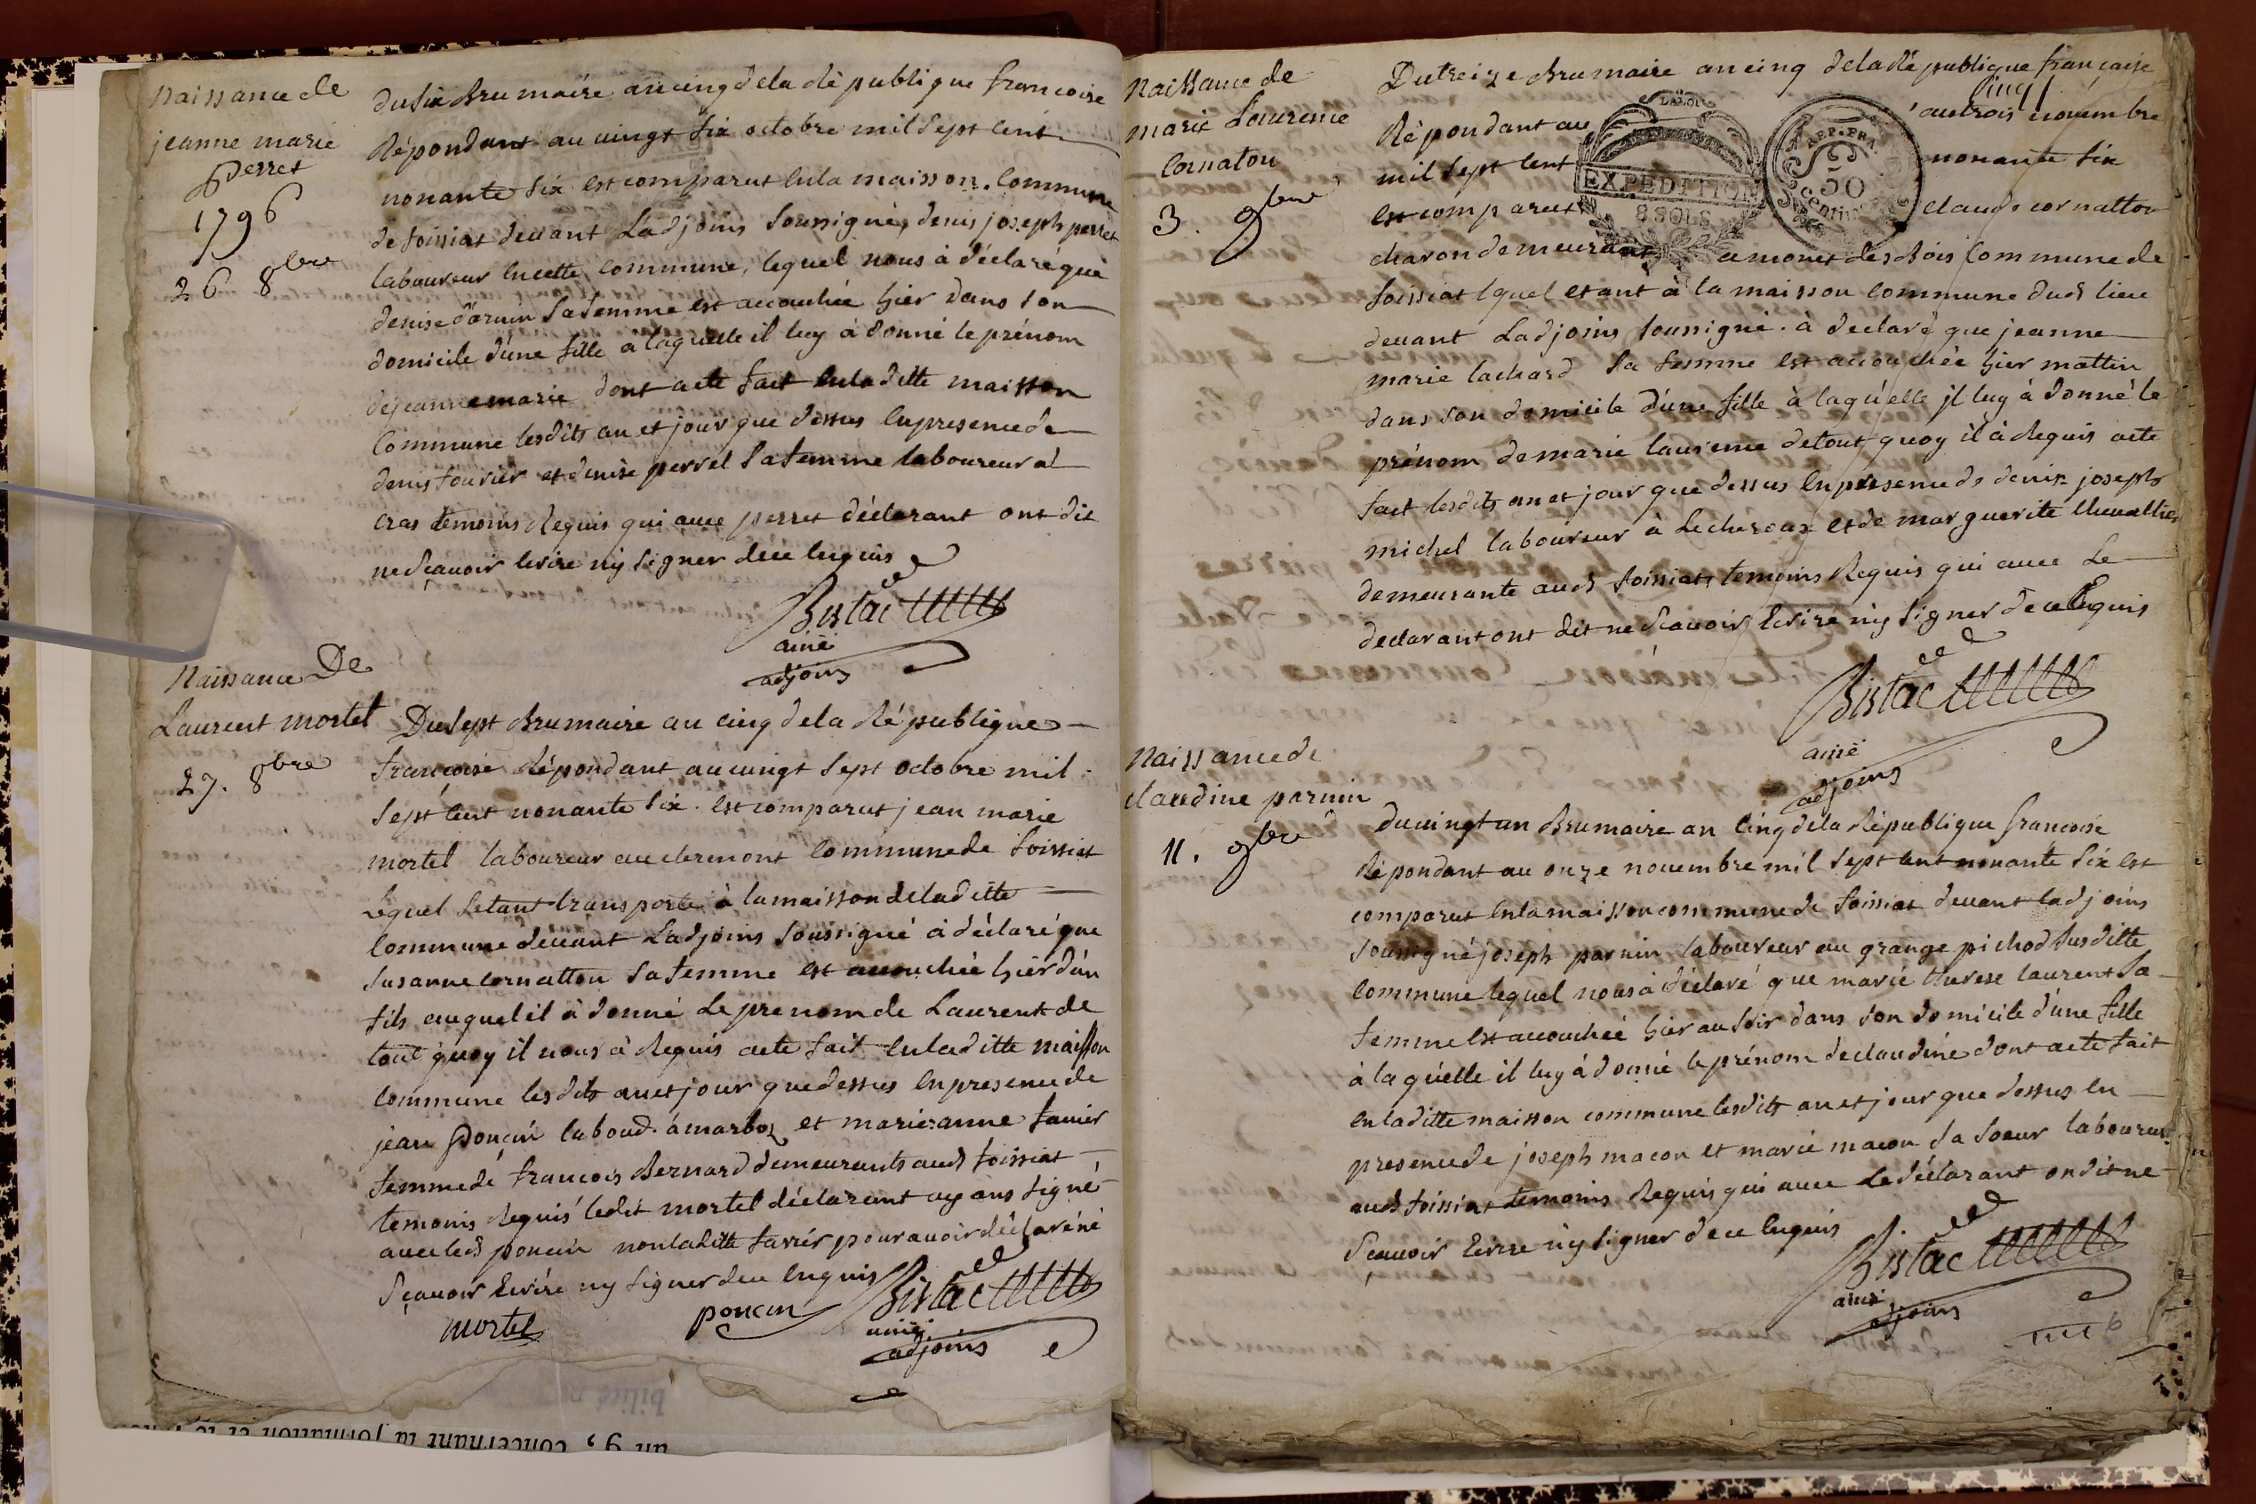 Naissance de
jeanne marie
Perret
1796
26 8bre
du six Brumaire an cinq de la République francoise
Répondant au vingt six octobre mil sept cent
nonante six est comparut en la maisson commune
de foissiat devant L'adjoins soussigné, denis joseph perret
laboureur en cette commune, lequel nous à déclaré que
denise sa femme est accouchée hier dans son
domicile d'une fille a laquelle il luy à donné le prénom
de jeanne marie dont acte fait en la ditte maisson
Commune lesdits an et jour que dessus en presence de
denis fourier et denise perret sa femme laboureur a
cras temoins Requis qui avec perret déclarant ont dit
ne sçavoir Ecrire ny signer de ce Enquis
Bistac
ainé
adjoins
Naissance De
Laurent mortel
27. 8bre
Du sept Brumaire an cinq de la République
francoise Répondant au vingt sept octobre mil
sept cent nonante six. est comparut jean marie
mortel laboureur au clermont commune de foissiat
lequel setant transporté à la maisson de laditte
commune devant L'adjoins soussigné à déclaré que
susanne cornatton sa femme est accouchée hier d'un
fils auquel il à donné Le prenom de Laurent de
tout quoy il nous à Requis acte fait en laditte maisson
commune lesdits an et jour que dessus en presence de
jean poncin laboud. à marboz et marie anne favier
femme de francois Bernard demeurants aud foissiat
temoins Requis ledit mortel déclarant ayans signé
avec led poncin non laditte favier pour avoir déclaré né
sçavoir Ecrire ny signer de ce Enquis
mortel
poncin
Bistac
ainé
adjoins
Naissance de
marie Laurence
Cornaton
3. 9bre
Du treize Brumaire an cinq de la République francaise
Répondant au au trois novembre
mil sept cent nonante six
est comparut claude cornatton
LA LOI
EXPEDITION
8 SOLS
50
centimes
charon demeurant a monet des Bois Commune de
foissiat lquel etant à la maisson commune dud lieu
devant L'adjoins soussigné. à declaré que jeanne
marie lachard sa femme est accouchée hier mattin
dans son domicile d'une fille à laquelle jl luy à donné le
prénom de marie laurence de tout quoy il à Requis acte
fait lesdits an et jour que dessus en presence de denis joseph
michel laboureur à Lecheroux et de marguerite
demeurante aud foissiat, temoins Requis qui avec Le
declarant ont dit ne sçavoir Ecrire ny signer de ce Enquis
Bistac
ainé
adjoins
Naissance de
claudine parnin
11. 9bre
du vingt un Brumaire an cinq de la République francoise
Répondant au onze novembre mil sept cent nonante six est
comparut en la maisson commune de foissiat devant l'adjoins
soussigné joseph parnin laboureur au grange pichod susditte
commune lequel nous à déclaré que marie therese laurent sa
femme est accouchée hier au soir dans son domicile d'une fille
à laquelle il luy à donné le prénom de claudine dont acte fait
en laditte maisson commune lesdits an et jour que dessus en
presence de joseph macon et marie macon sa soeur laboureur
aud foissiat temoins Requis qui avec le déclarant on dit ne
sçavoir Ecrire ny signer de ce Enquis
Bistac
ainé
adjoins